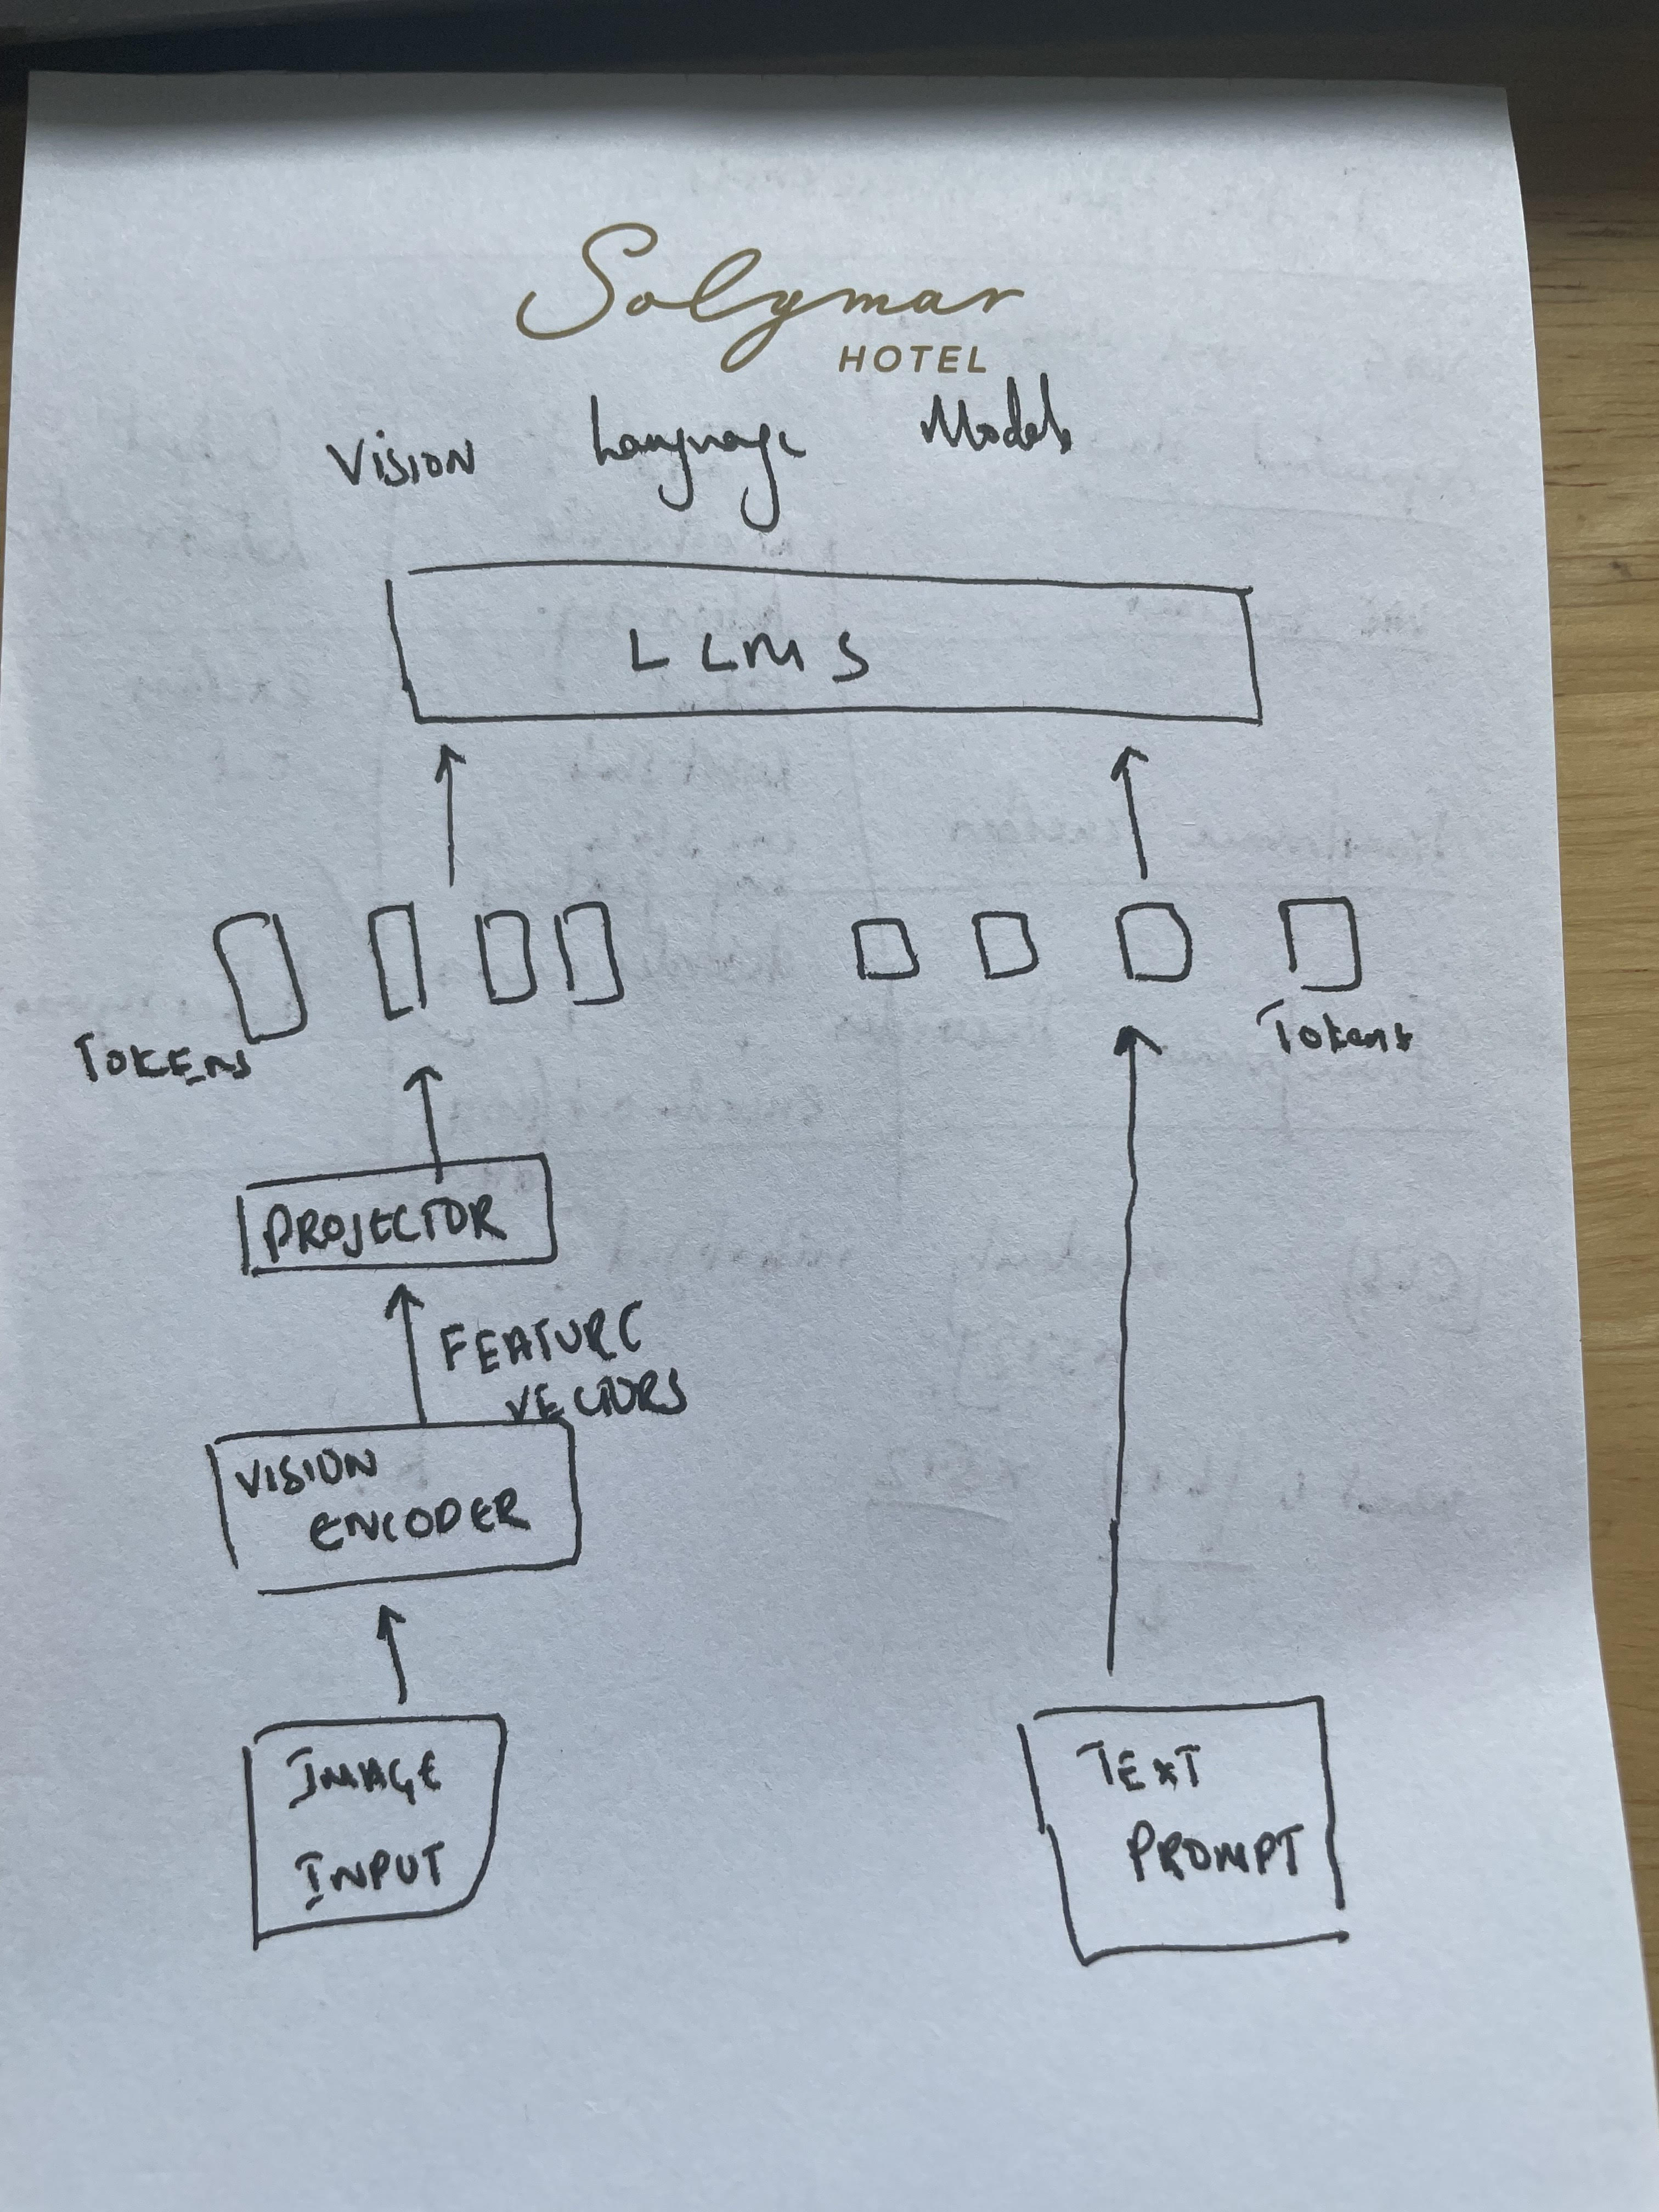 Solymar
HOTEL
Vision Language Models
LLMS
TOKENS
Tokens
PROJECTOR
FEATURE
VECTORS
VISION
ENCODER
IMAGE
INPUT
TEXT
PROMPT